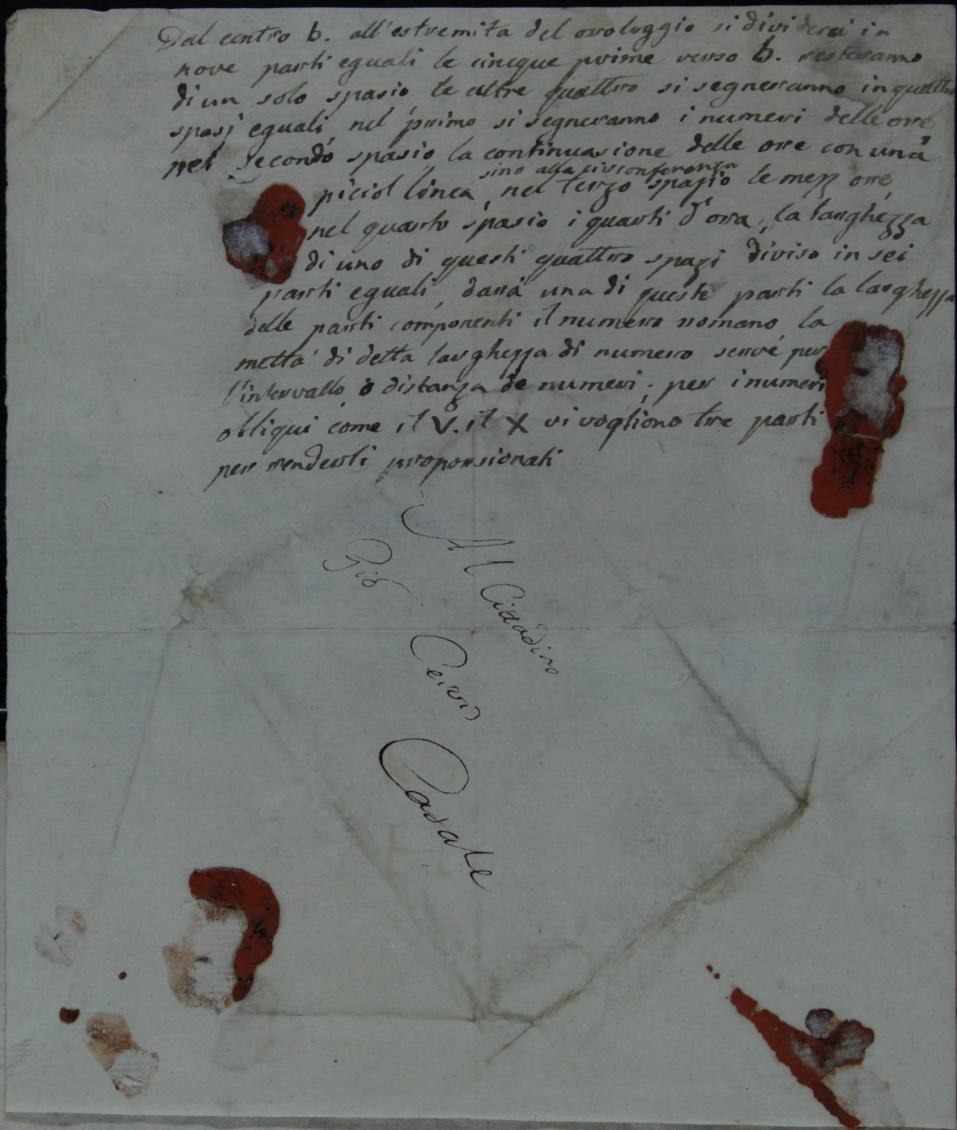 Dal centro b. all'estremita del orologgio si dividerai in
nove parti eguali le cinque prime verso b. resteranno
di un solo spasio le altre quattro si segneranno in quattro
spasj eguali, nel primo si segneranno i numeri delle ore,
nel secondo spasio la continuasione delle ore con una
sino alla circonferenza
piciol linea, nel terzo spazio le mezz ore
nel quarto spasio i quarti d'ora, la larghezza
di uno di questi quattro spazi diviso in sei
parti eguali, darà una di queste parti la larghezza
delle parti componenti il numero romano la
metta di detta larghezza di numero serve per
l'intervallo o distanza de numeri; per i numeri
obliqui come il V. il X vi vogliono tre parti
per renderli proporsionati
Al Cittadino
Gio
Casale